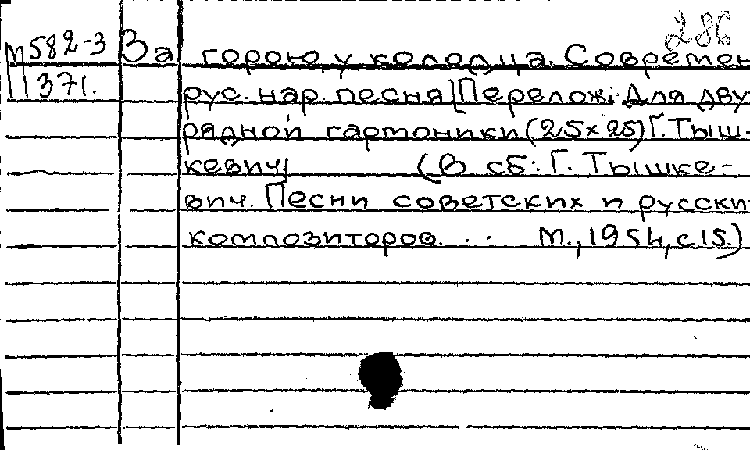 286
М582-3 За горою, у колодца. Современ
П371. рус. нар. песня [Перелож. для дву
рядной гармоники (25х25) Г. Тыш-
кевич] (В сб: Г. Тышке-
вич. Песни советских и русски
композиторов. . . М., 1954, с.15.)